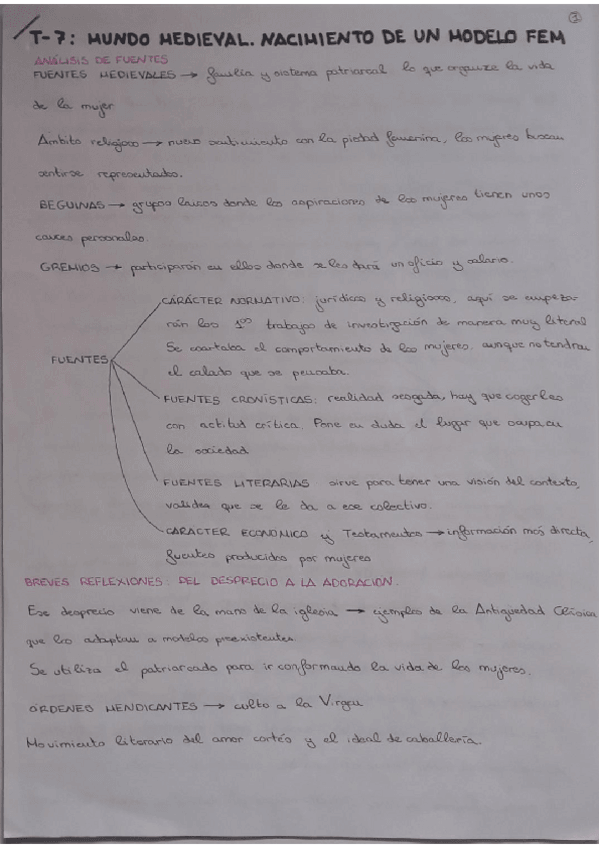 1
T-7: MUNDO MEDIEVAL. NACIMIENTO DE UN MODELO FEM
ANÁLISIS DE FUENTES
FUENTES MEDIEVALES → familia y sistema patriarcal lo que organiza la vida
de la mujer
Ámbito religioso → nuevo sentimiento con la piedad femenina, las mujeres buscan
sentirse representadas.
BEGUINAS → grupos laicos donde las aspiraciones de las mujeres tienen unos
cauces personales.
GREMIOS → participarán en ellos donde se les dará un oficio y salario.
FUENTES
CARÁCTER NORMATIVO: jurídicas y religiosas, aquí se empeza-
rán los 1os trabajos de investigación de manera muy literal
Se coartaba el comportamiento de las mujeres, aunque no tendrán
el calado que se pensaba.
FUENTES CRONÍSTICAS: realidad sesgada, hay que cogerlas
con actitud crítica. Pone en duda el lugar que ocupa en
la sociedad
FUENTES LITERARIAS sirve para tener una visión del contexto,
validez que se le da a ese colectivo.
CARÁCTER ECONÓMICO y Testamentos → información más directa,
fuentes producidas por mujeres
BREVES REFLEXIONES: DEL DESPRECIO A LA ADORACIÓN.
Ese desprecio viene de la mano de la iglesia → ejemplos de la Antigüedad Clásica
que los adaptan a modelos preexistentes.
Se utiliza el patriarcado para ir conformando la vida de las mujeres.
ÓRDENES MENDICANTES → culto a la Virgen
Movimiento literario del amor cortés y el ideal de caballería.